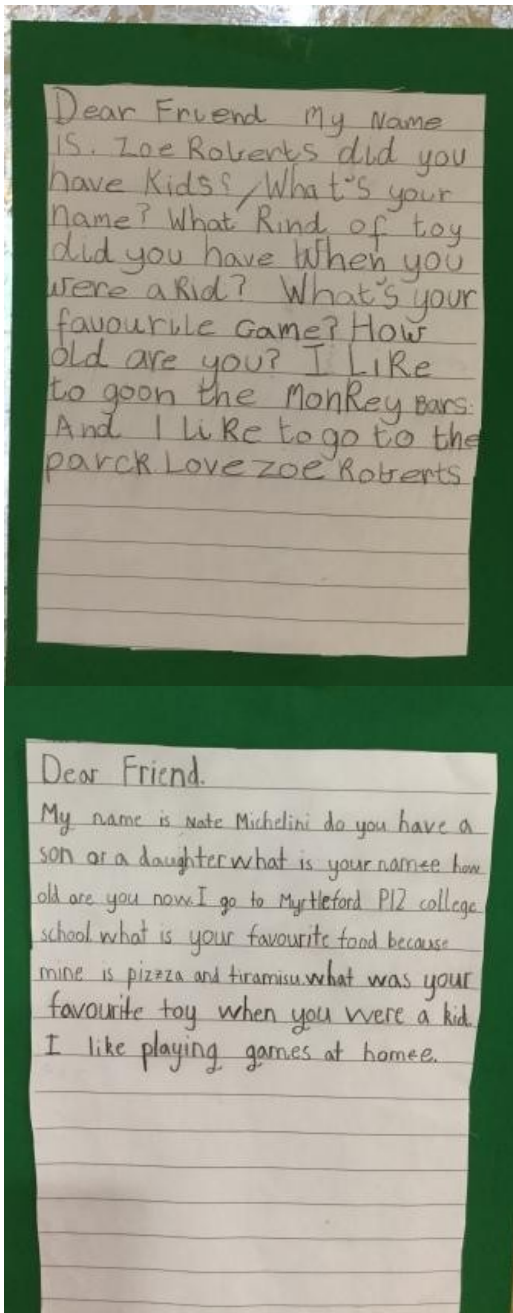 Dear Friend My Name
is. Zoe Roberts did you
have Kids? What's your
name? What Kind of toy
did you have When you
were a Kid? What's your
favourile Game? How
old are you? I Like
to goon the MonKey Bars.
And I LiKe to go to the
parck Love zoe Roberts
Dear Friend.
My name is Nate Michelini do you have a
son or a daughter what is your namee how
old are you now. I go to Myrtleford P12 college
school. what is your favourite food because
mine is pizzza and tiramisu. what was your
favourite toy when you were a kid.
I like playing games at homee.